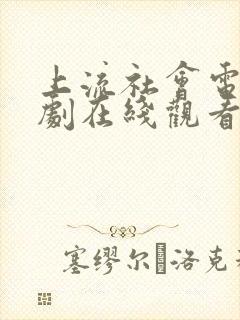 上流社會電
劇在綫觀看
塞缪尔·洛克